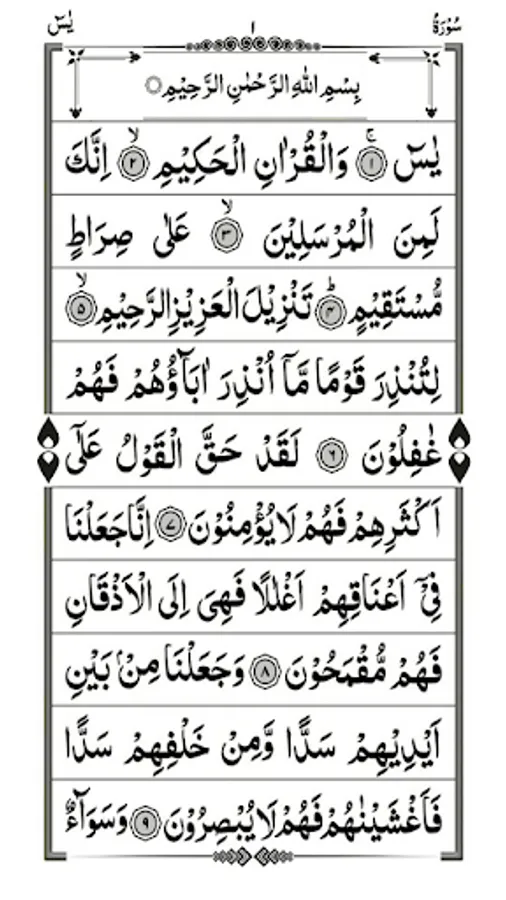 سُوْرَةُ ١ يٰسٓ
بِسْمِ اللّٰهِ الرَّحْمٰنِ الرَّحِيْمِ
يٰسٓ ۚ﴿١﴾ وَالْقُرْاٰنِ الْحَكِيْمِ ۙ﴿٢﴾ اِنَّكَ
لَمِنَ الْمُرْسَلِيْنَ ۙ﴿٣﴾ عَلٰى صِرَاطٍ
مُّسْتَقِيْمٍ ؕ﴿۴﴾ تَنْزِيْلَ الْعَزِيْزِ الرَّحِيْمِ ۙ﴿۵﴾
لِتُنْذِرَ قَوْمًا مَّاۤ اُنْذِرَ اٰبَآؤُهُمْ فَهُمْ
غٰفِلُوْنَ ﴿٦﴾ لَقَدْ حَقَّ الْقَوْلُ عَلٰٓى
اَكْثَرِهِمْ فَهُمْ لَا يُؤْمِنُوْنَ ﴿٧﴾ اِنَّا جَعَلْنَا
فِيْٓ اَعْنَاقِهِمْ اَغْلٰلًا فَهِيَ اِلَى الْاَذْقَانِ
فَهُمْ مُّقْمَحُوْنَ ﴿٨﴾ وَجَعَلْنَا مِنْۢ بَيْنِ
اَيْدِيْهِمْ سَدًّا وَّمِنْ خَلْفِهِمْ سَدًّا
فَاَغْشَيْنٰهُمْ فَهُمْ لَا يُبْصِرُوْنَ ﴿٩﴾ وَسَوَآءٌ